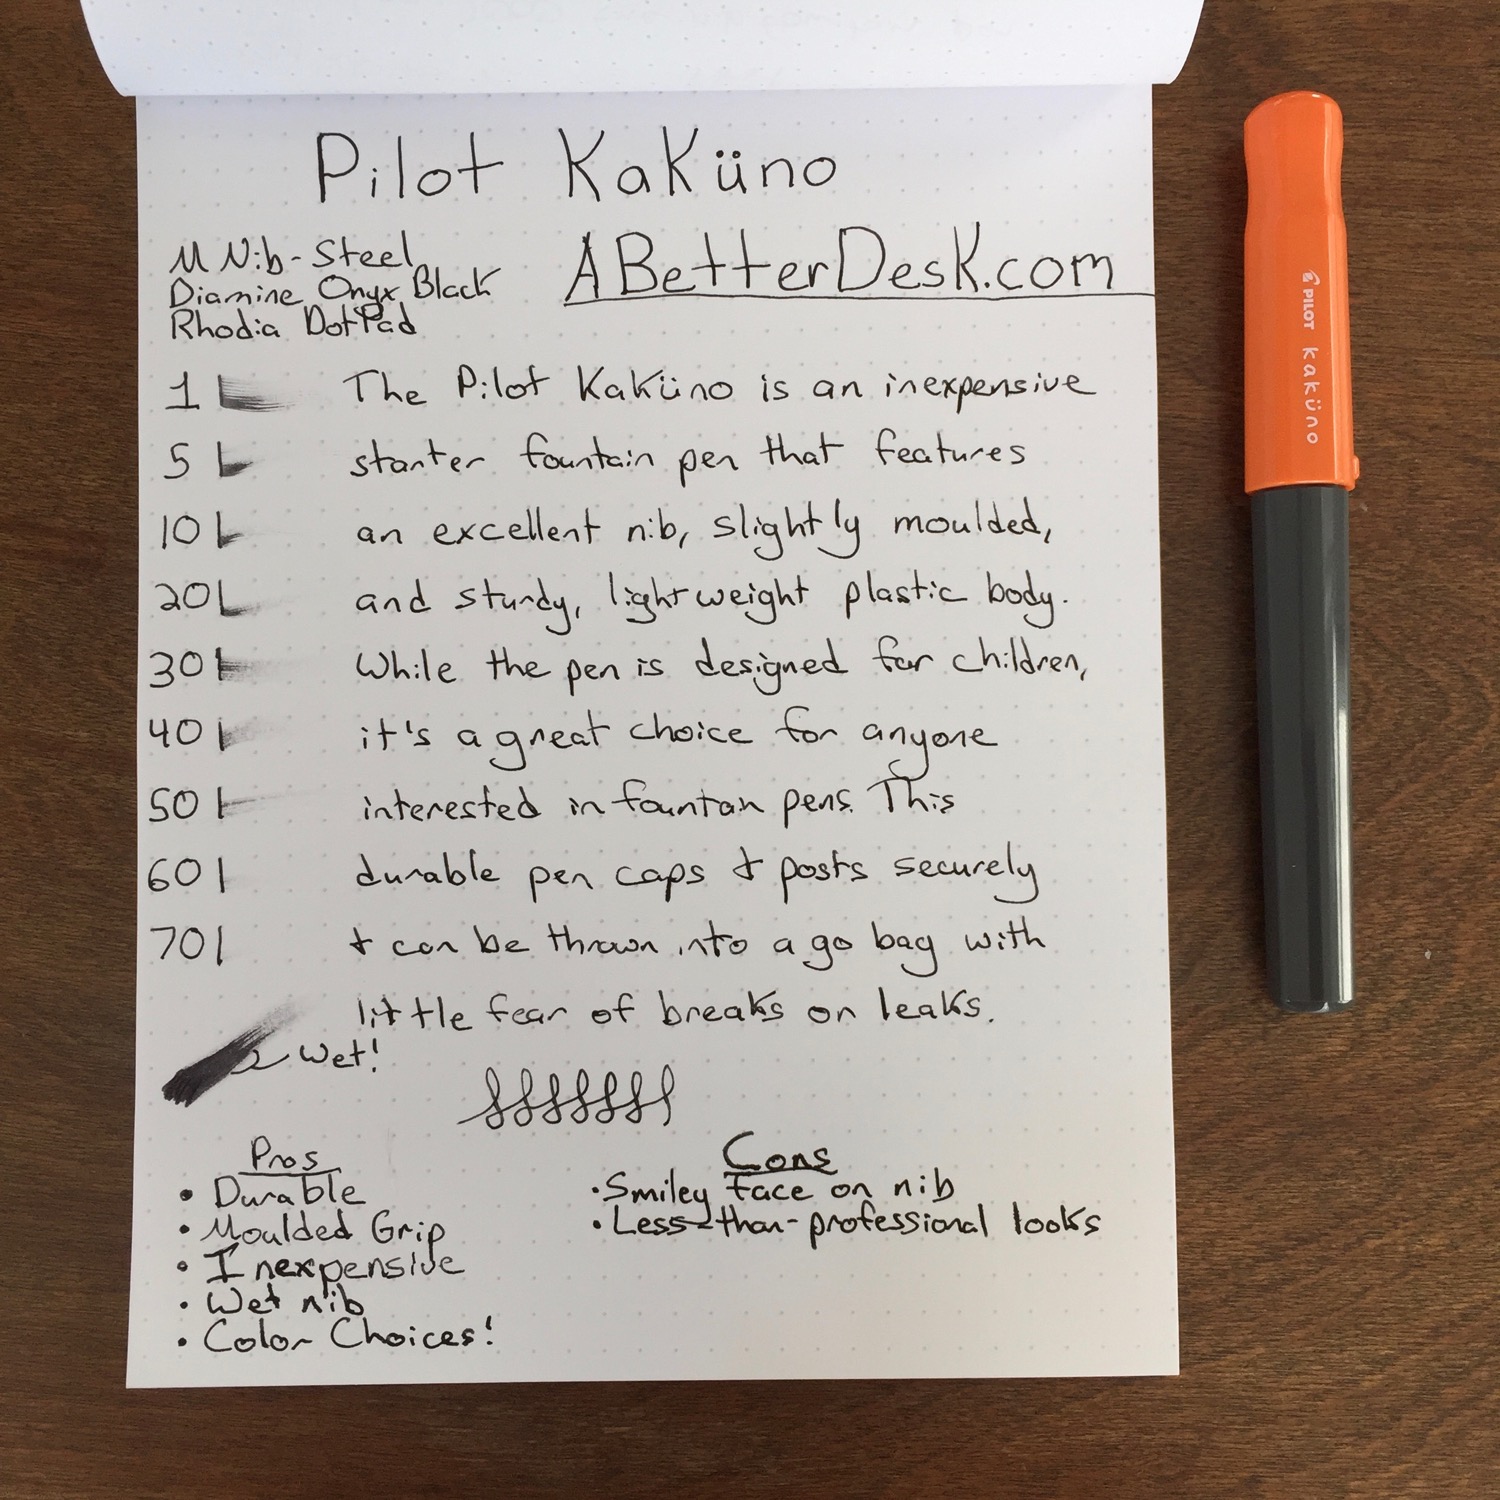 Pilot Kaküno
M Nib - Steel
Diamine Onyx Black
Rhodia DotPad
ABetterDesk.com
1 The Pilot Kaküno is an inexpensive
5 starter fountain pen that features
10 an excellent nib, slightly moulded,
20 and sturdy, lightweight plastic body.
30 While the pen is designed for children,
40 it's a great choice for anyone
50 interested in fountain pens. This
60 durable pen caps & posts securely
70 & can be thrown into a go bag with
little fear of breaks or leaks.
Wet!
Pros
• Durable
• Moulded Grip
• Inexpensive
• Wet nib
• Color Choices!
Cons
• Smiley face on nib
• Less-than-professional looks
PILOT kaküno